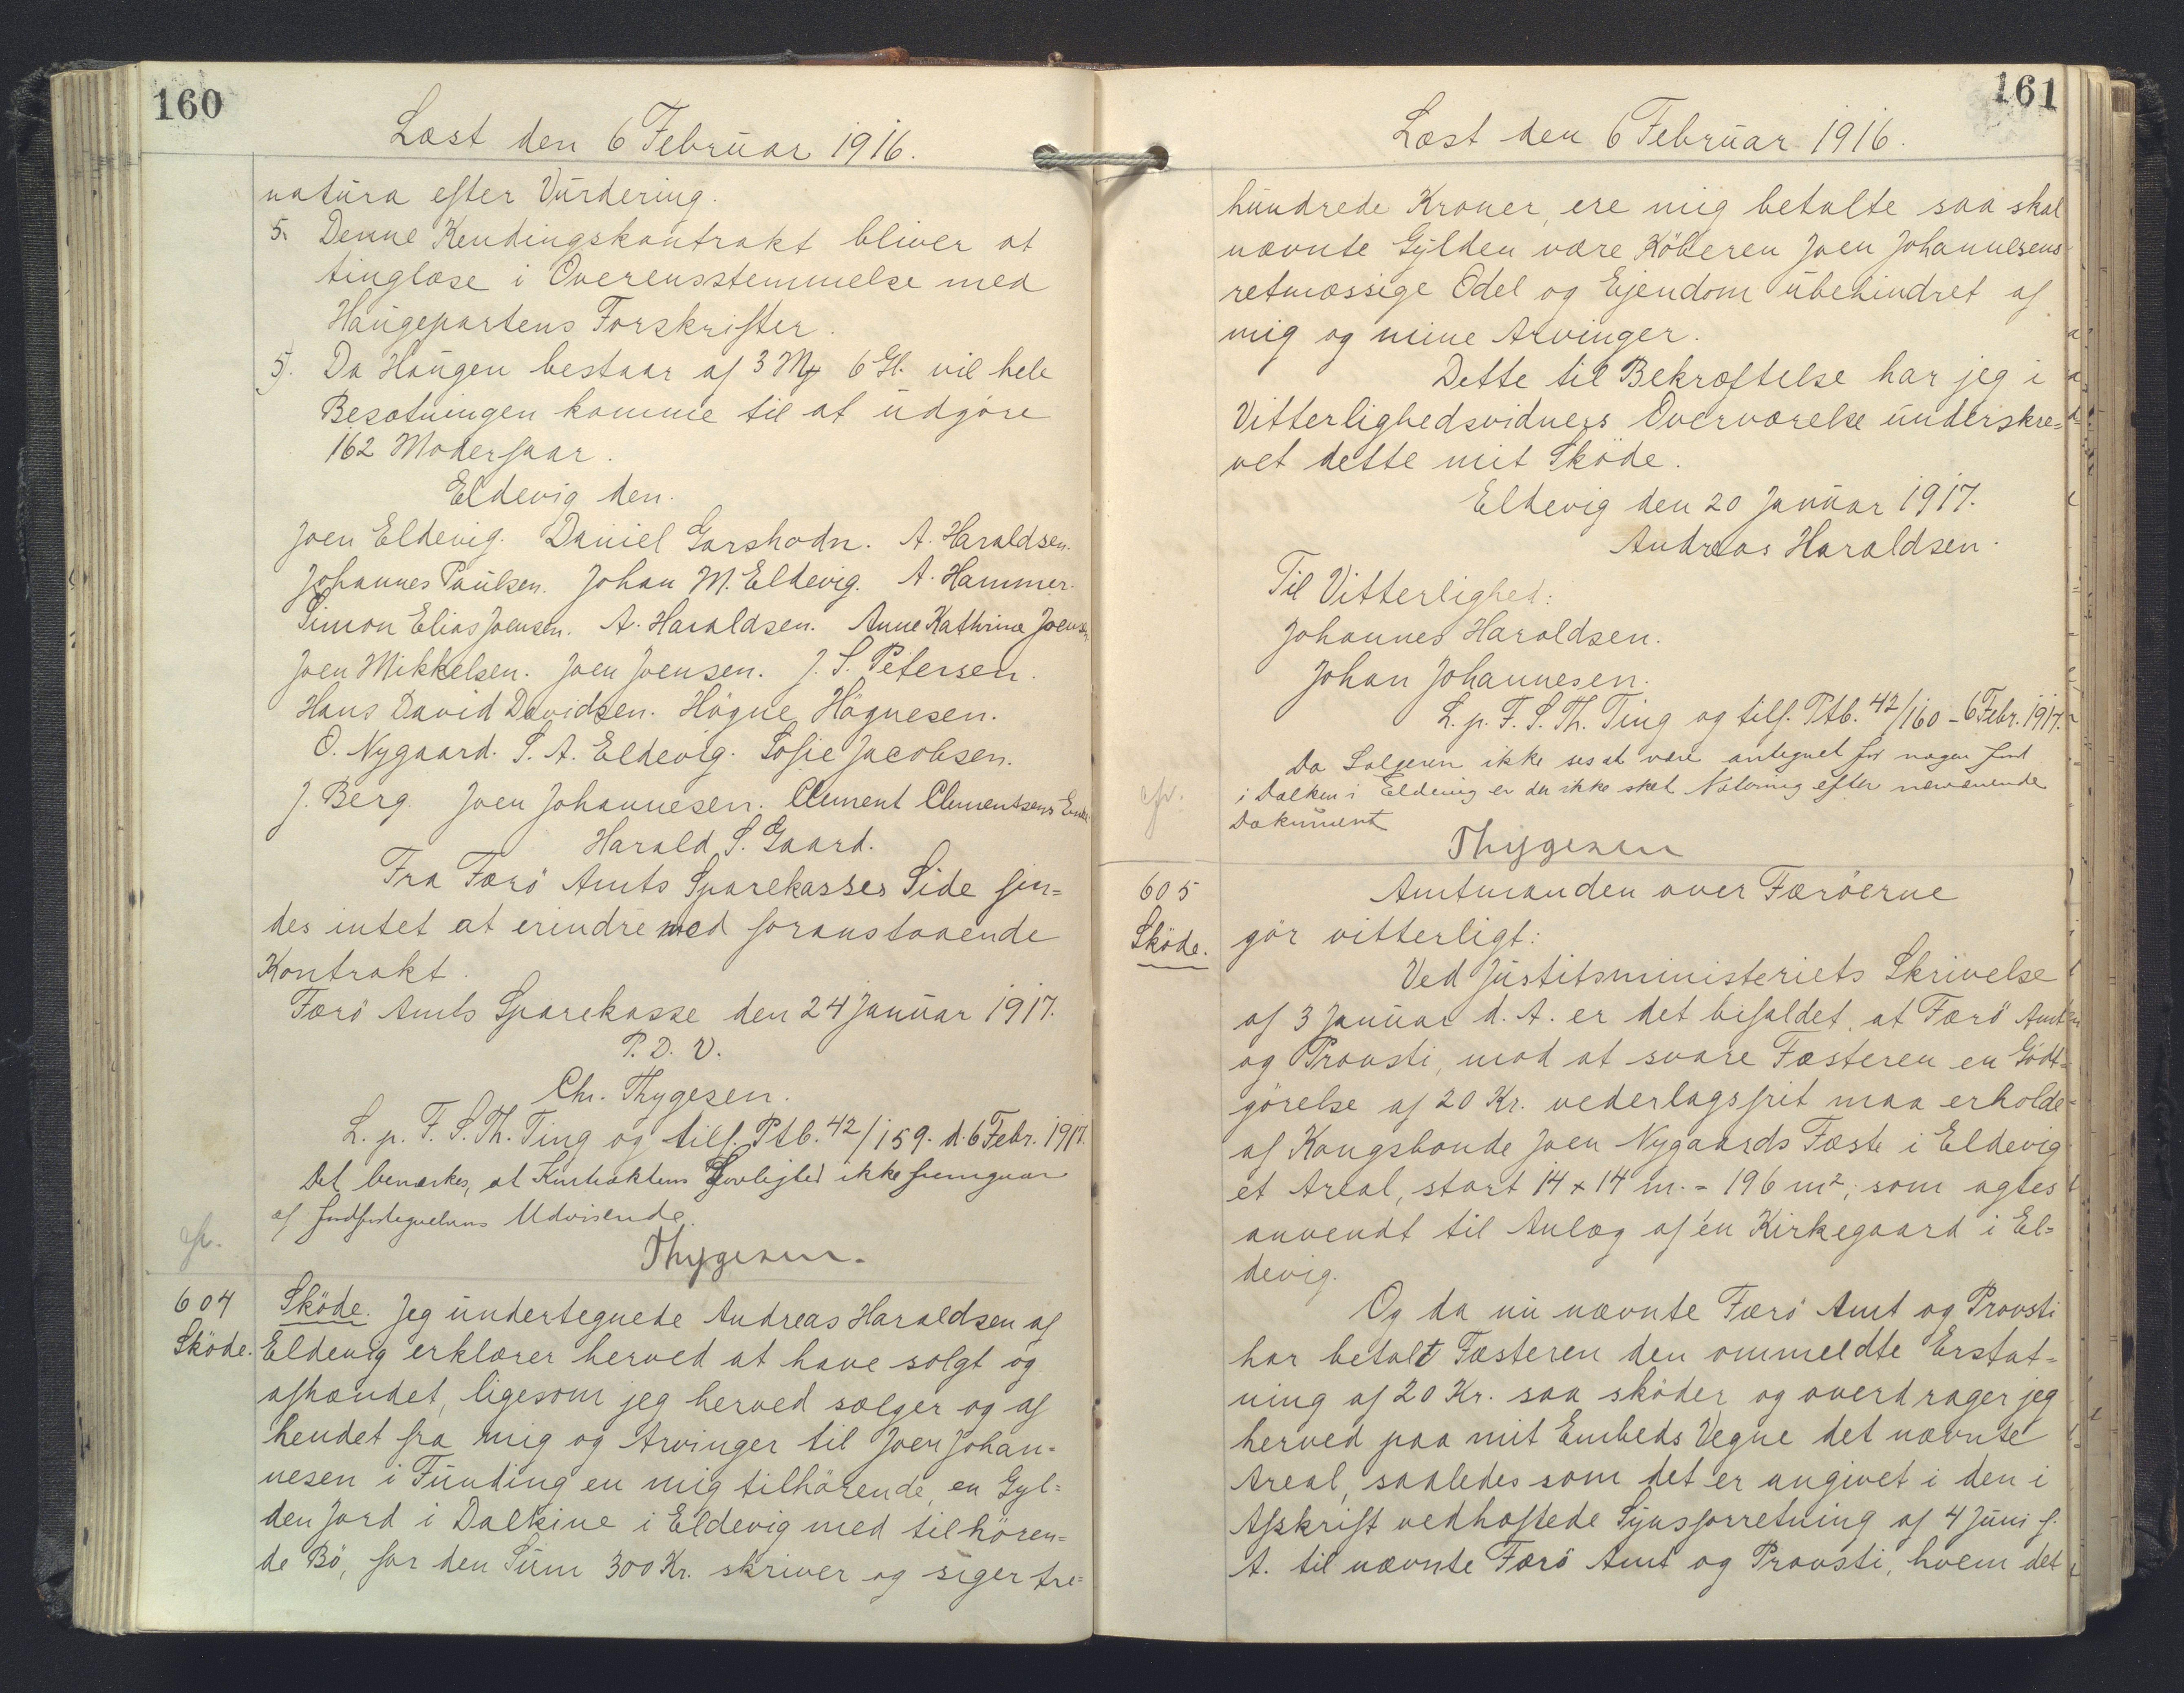 160
Læst den 6 Februar 1916.
natura efter Vurdering.
5. Denne Kendingskontrakt bliver at
tinglæse i Overensstemmelse med
Haugepartens Forskrifter.
5). Da Haugen bestaar af 3 Mk 6 Gl. vil hele
Besætningen komme til at udgøre
162 Moderfaar.
Eldevig den.
Joen Eldevig. Daniel Garshodn. A. Haraldsen.
Johannes Paulsen. Johan M. Eldevig. A. Hammer.
Simon Elias Joensen. A. Haraldsen. Anne Kathrine Joensen.
Joen Mikkelsen. Joen Joensen. J. S. Petersen.
Hans David Davidsen. Högne Högnesen.
O. Nygaard. S. A. Eldevig. Sofie Jacobsen.
J. Berg. Joen Johannesen. Clement Clementsens Enke
Harald S. Gaard.
Fra Færö Amts Sparekasses Side fin=
des intet at erindre mod foranstaaende
Kontrakt.
Færö Amts Sparekasse den 24 Januar 1917.
P. D. V.
Chr. Thygesen.
L. p. F. S. Th. Ting og tilf. Ptb. 42/159. d. 6 Febr. 1917.
Det bemærkes, at Kontraktens Lovlighed ikke fremgaar
af Jordfortegnelsens Udvisende.
Thygesen.
604
Sköde.
Sköde. Jeg undertegnede Andreas Haraldsen af
Eldevig erklærer herved at have solgt og
afhændet, ligesom jeg herved sælger og af
hendet fra mig og Arvinger til Joen Johan-
nesen i Funding en mig tilhörende, en Gyl=
den Jord i Dalkine i Eldevig med tilhören=
de Bö, for den Sum 300 Kr. skriver og siger tre=
161
Læst den 6 Februar 1916.
hundrede Kroner, ere mig betalte saa skal
nævnte Gylden være Köberen Joen Johannesens
retmæssige Odel og Ejendom ubehindret af
mig og mine Arvinger.
Dette til Bekræftelse har jeg i
Vitterlighedsvidners Overværelse underskre=
vet dette mit Sköde.
Eldevig den 20 Januar 1917.
Andreas Haraldsen.
Til Vitterlighed:
Johannes Haraldsen.
Johan Johannesen.
L. p. F. S. Th. Ting og tilf. Ptb. 42/160 - 6 Febr. 1917.
Da Sælgeren ikke ses at være antegnet for nogen Jord
i Dalken i Eldevig er der ikke sket Notering efter nærværende
Dokument
Thygesen
605
Sköde.
Amtmanden over Færöerne
gör vitterligt:
Ved Justitsministeriets Skrivelse
af 3 Januar d. A. er det bifaldet, at Færö Amt
og Provsti, mod at svare Fæsteren en Godt=
görelse af 20 Kr. vederlagsfrit maa erholde
af Kongsbonde Joen Nygaards Fæste i Eldevig
et Areal, stort 14 x 14 m. = 196 m², som agtes
anvendt til Anlæg af en Kirkegaard i El=
devig.
Og da nu nævnte Færö Amt og Provsti
har betalt Fæsteren den ommeldte Erstat=
ning af 20 Kr. saa sköder og overdrager jeg
herved paa mit Embeds Vegne det nævnte
Areal, saaledes som det er angivet i den i
Afskrift vedhæftede Synsforretning af 4 Juni f.
A. til nævnte Færö Amt og Provsti, hvem det